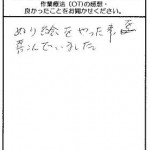 作業療法（OT）の感想・
良かったことをお聞かせください。
ぬり絵をやった事
喜んでいました。